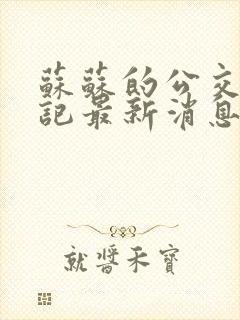 蘇蘇的公交
記最新消息
就醬禾寶